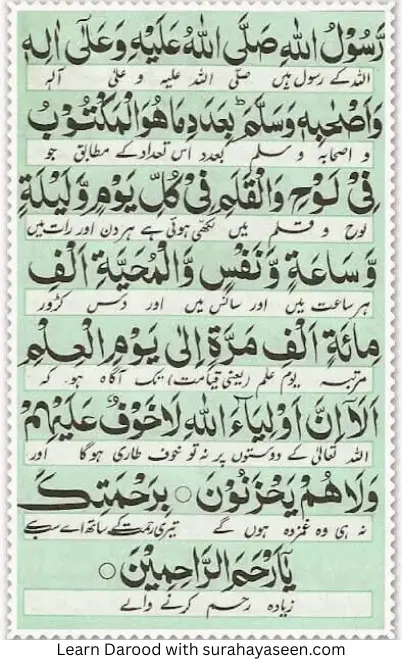 رَّسُوْلُ اللهِ صَلَّى اللهُ عَلَيْهِ وَعَلٰٓى اٰلِهٖ
اللہ کے رسول ہیں صلی اللہ علیہ و علیٰ آلہٖ
وَاَصْحٰبِهٖ وَسَلَّمَ ؕ بِعَدَدِ مَا هُوَ الْمَكْتُوْبُ
و اصحابہ و سلم بعدد اس تعداد کے مطابق جو
فِیْ لَوْحِ وَالْقَلَمِ فِیْ كُلِّ يَوْمٍ وَّلَيْلَةٍ
لوح و قلم میں لکھی ہوئی ہے ہر دن اور رات میں
وَّسَاعَةٍ وَّنَفْسٍ وَّالْمُحَيَّةِ اَلْفَ
ہر ساعت میں اور سانس میں اور دس کڑور
مِائَةِ اَلْفِ مَرَّةٍ اِلٰى يَوْمِ الْعِلْمِ
مرتبہ یوم علم (یعنی قیامت) تک آگاہ ہو کہ
اَلَآ اِنَّ اَوْلِيَآءَ اللهِ لَا خَوْفٌ عَلَيْهِمْ
اللہ تعالیٰ کے دوستوں پر نہ تو خوف طاری ہو گا اور
وَلَا هُمْ يَحْزَنُوْنَ ○ بِرَحْمَتِكَ
نہ ہی وہ غمزدہ ہوں گے تیری رحمت کے ساتھ اے سب سے
يَآ اَرْحَمَ الرَّاحِمِيْنَ ○
زیادہ رحم کرنے والے
Learn Darood with surahayaseen.com